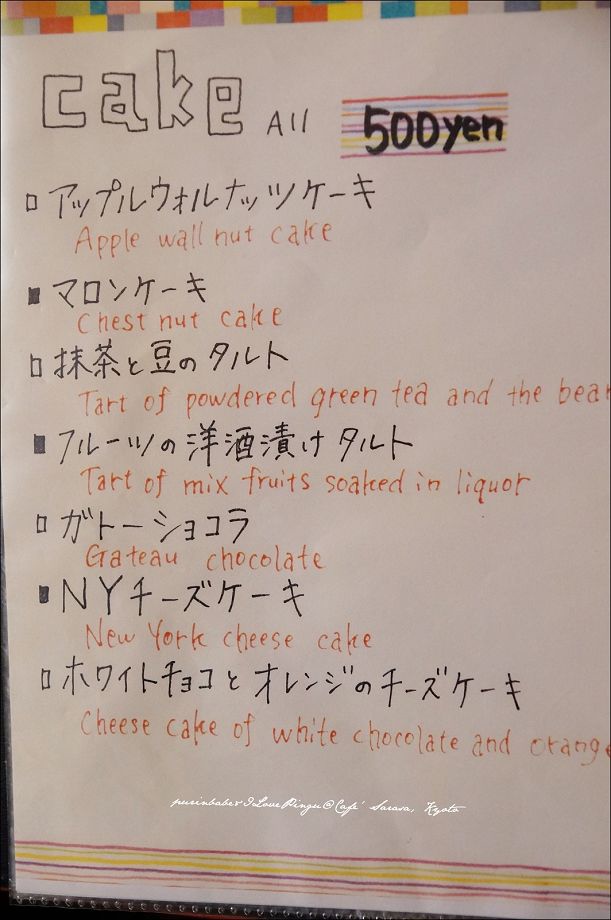 cake All 500yen
アップルウォルナッツケーキ
Apple wall nut cake
マロンケーキ
Chest nut cake
抹茶と豆のタルト
Tart of powdered green tea and the bean
フルーツの洋酒漬けタルト
Tart of mix fruits soaked in liquor
ガトーショコラ
Gateau chocolate
NYチーズケーキ
New York cheese cake
ホワイトチョコとオレンジのチーズケーキ
Cheese cake of white chocolate and orange
purinbabe & I Love Pingu @ Café Sarasa, Kyoto